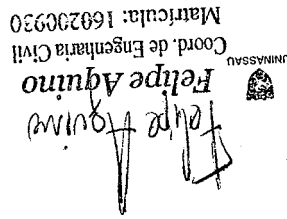 Felipe Aquino
UNINASSAU
Felipe Aquino
Coord. de Engenharia Civil
Matrícula: 160200930